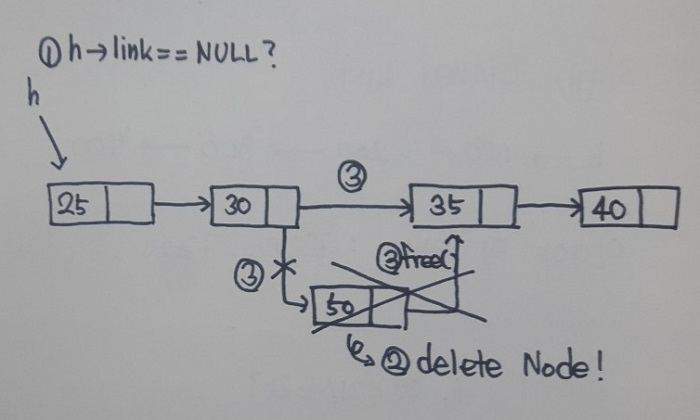 ① h→link == NULL?
h
③
25 30 35 40
③ ③free()
50
② delete Node!